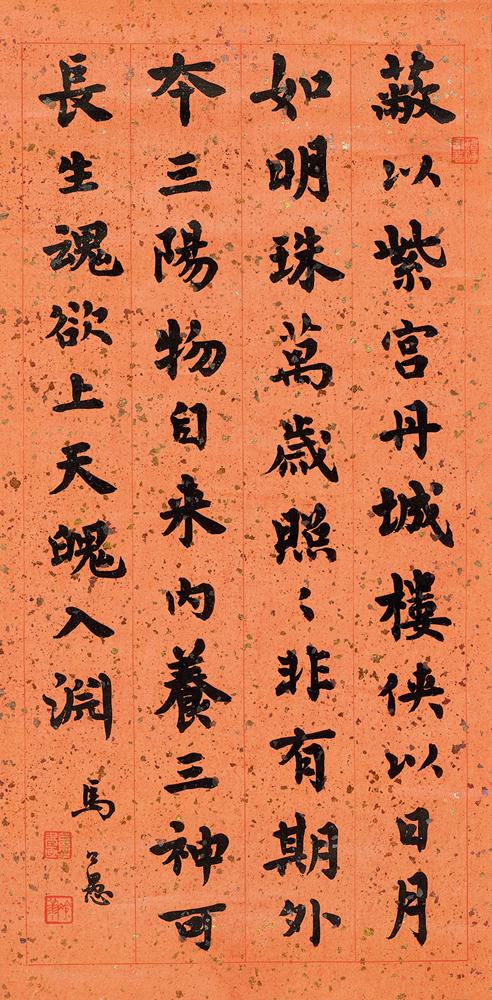 蔽以紫宫丹城樓俠以日月
如明珠萬歲照〻非有期外
夲三陽物自来内養三神可
長生魂欲上天魄入淵
馬公愚